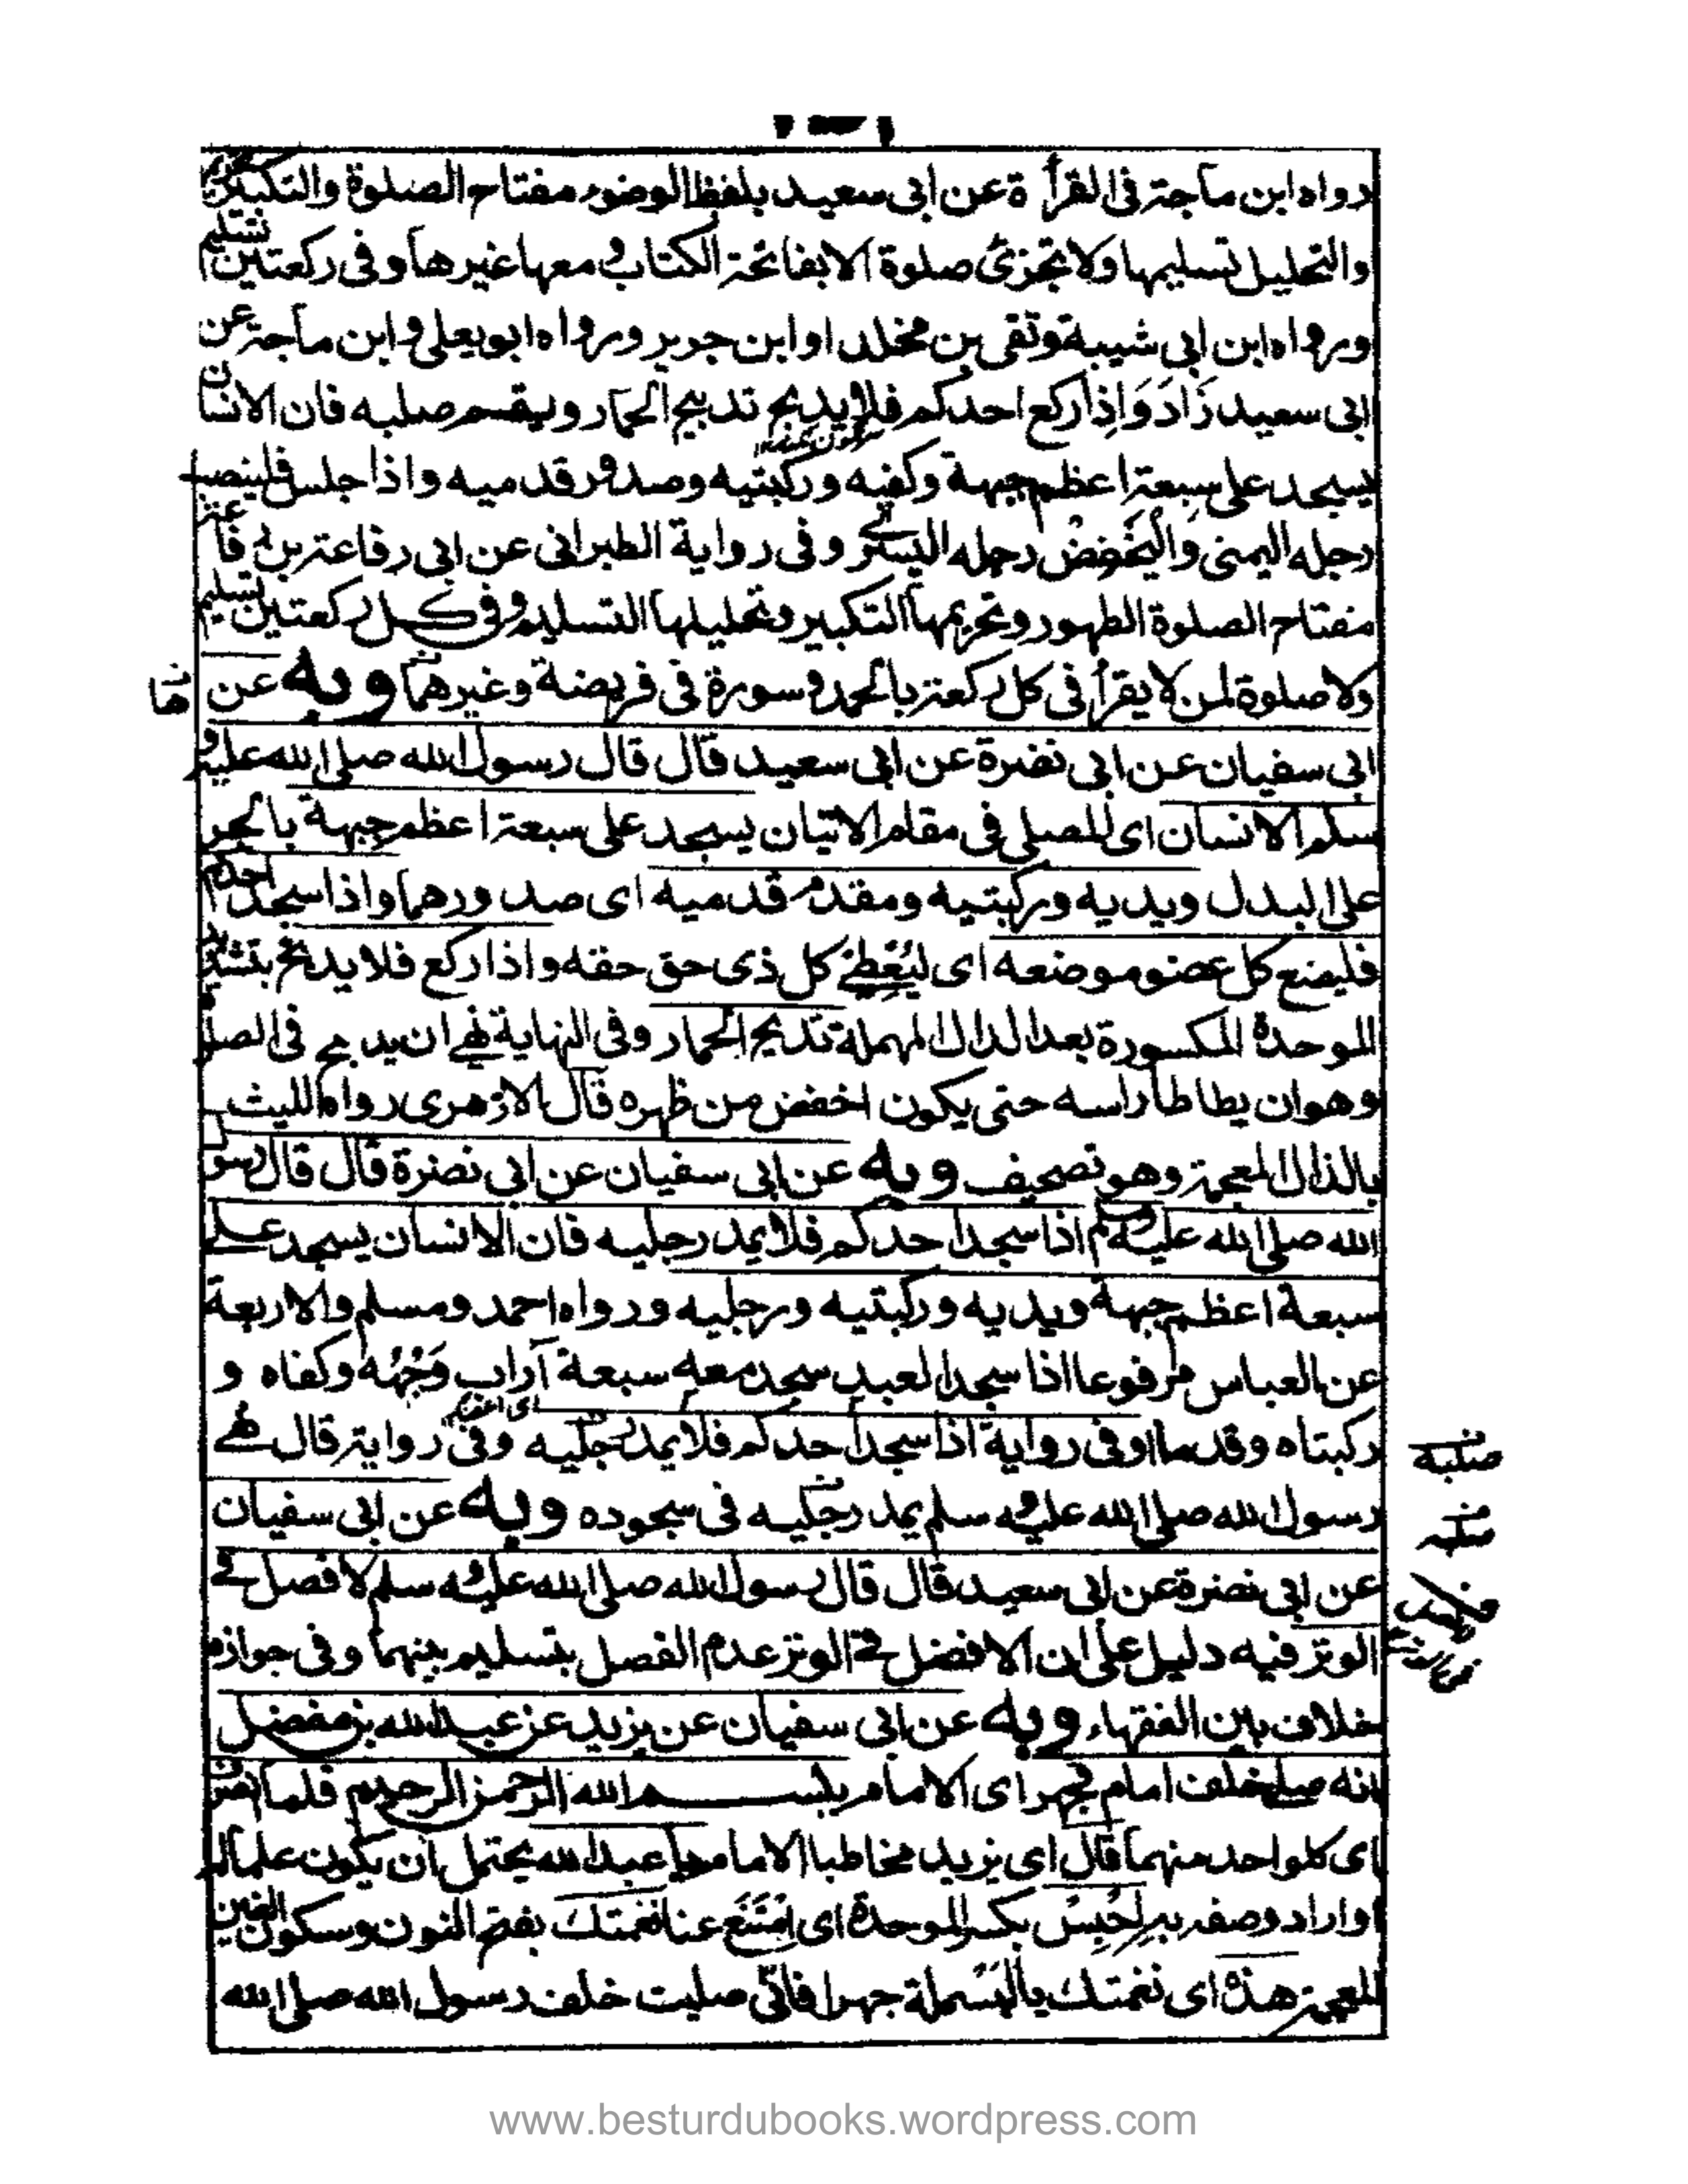 رواه ابن ماجة فى القرأة عن ابى سعيد بلفظ الوضوء مفتاح الصلوة والتكبير تحريم
والتحليل تسليمها ولا تجزئ صلوة الا بفاتحة الكتاب و معها غيرها وفى ركعتين تسليم
ورواه ابن ابى شيبة وتقى بن مخلد اوابن جرير ورواه ابويعلى وابن ماجة عن
ابى سعيد زَادَ وَاِذا ركع احدكم فلا يدبح تدبيح الحمار وليقسم صلبه فان الانسان
يسجد على سبعة اعظم جبهة وكفيه وركبتيه وصدور قدميه واذا جلس فلينصب
رجله اليمنى واليخفض رجله اليسرى وفى رواية الطبرانى عن ابى رفاعة بن
مفتاح الصلوة الطهور وتحريمها التكبير وتحليلها التسليم وفى كل ركعتين تسليم
ولا صلوة لمن لا يقرأ فى كل ركعة بالحمد وسورة فى فريضة وغيرهما وبه عن
ابى سفيان عن ابى نضرة عن ابى سعيد قال قال رسول الله صلى الله عليه و
سلم الانسان اى المصلى فى مقام الاتيان يسجد على سبعة اعظم جبهة بالجر
على البدل ويديه وركبتيه ومقدم قدميه اى صدورهما واذا سجد احدكم
فليضع كل عضو موضعه اى ليُعْطِىَ كل ذى حق حقه واذا ركع فلا يدبح بتشديد
الموحدة المكسورة بعد الدال المهملة تدبيح الحمار وفى النهاية نهى ان يدبح فى الصلوة
وهوان يطاطا راسه حتى يكون اخفض من ظهره قال الازهرى رواه الليث
بالذال المعجمة وهو تصحيف وبه عن ابى سفيان عن ابى نضرة قال قال رسول
الله صلى الله عليه وسلم اذا سجد احدكم فلا يمد رجليه فان الانسان يسجد على
سبعة اعظم جبهة ويديه وركبتيه ورجليه ورواه احمد ومسلم والاربعة
عن العباس مرفوعا اذا سجد العبد سجد معه سبعة آراب وَجْهُه وكفاه و
ركبتاه وقدماه وفى رواية اذا سجد احدكم فلا يمد رجليه وفى رواية قال نهى
رسول الله صلى الله عليه وسلم يمد رجليه فى سجوده وبه عن ابى سفيان
عن ابى نضرة عن ابى سعيد قال قال رسول الله صلى الله عليه وسلم لا فصل فى
الوتر فيه دليل على ان الافضل فى الوتر عدم الفصل بتسليم بينهما وفى جوازه
خلاف بين الفقهاء وبه عن ابى سفيان عن يزيد عن عبدالله بن مفضل
انه صلى خلف امام فجهر اى الامام ببسم الله الرحمن الرحيم فلما انصرف
اى كلواحد منهما قال اى يزيد مخاطبا الامام يا عبدالله يحتمل ان يكون علماله
اواراد وصفه به اِحْبِسْ بكسر الموحدة اى اِمْتَنِعْ عنا نغمتك بفتح النون وسكون الغين
المعجمة هذه اى نغمتك بالبَسْمَلة جهرا فانى صليت خلف رسول الله صلى الله
صلبه
www.besturdubooks.wordpress.com